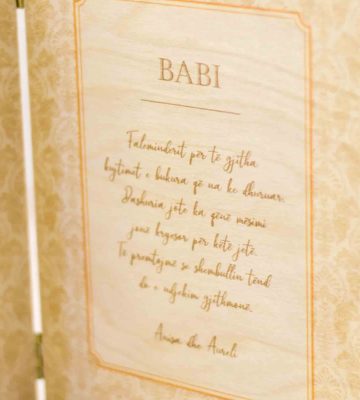 BABI
Faleminderit për të gjitha
kujtimet e bukura që na ke dhuruar.
Dashuria jote ka qenë mësimi
jonë kryesor për këtë jetë.
Të premtojmë se shembullin tënd
do e ndjekim gjithmonë.
Anisa dhe Aureli